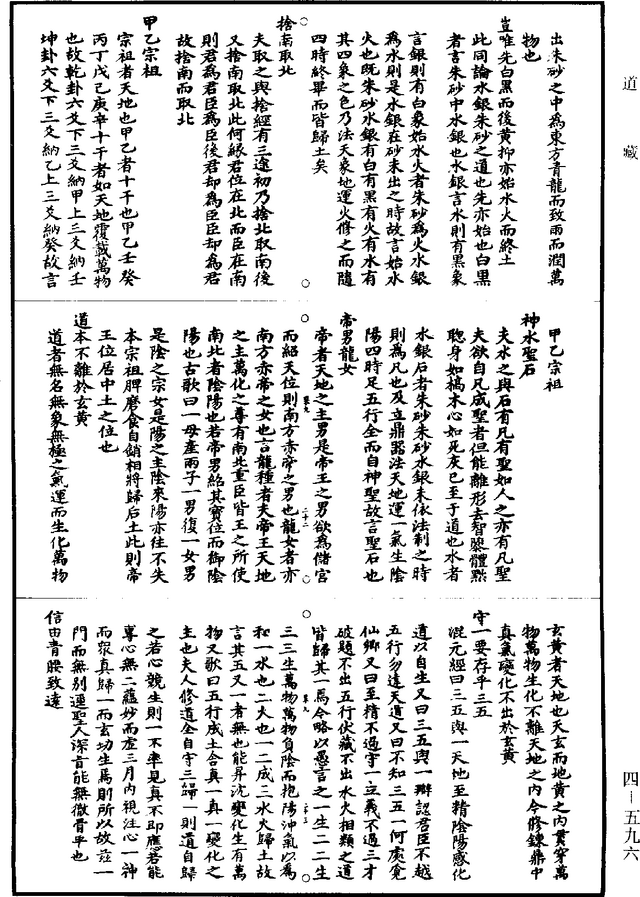 道藏
出朱砂之中為東方青龍而致雨而潤萬
物也
豈唯先白黑而後黃抑亦始水火而終土
此同論水銀朱砂之道也先亦始也白黑
者言朱砂中水銀也水銀言水則有黑象
言銀則有白象始水火者朱砂為火水銀
為水則是水銀在砂未出之時故言始水
火也既朱砂水銀有白有黑有火有水有
其四象之色乃法天象地運火修之而隨
四時終畢而皆歸土矣
捨南取北
夫取之與捨經有三途初乃捨北取南後
又捨南取北此何緣君位在北而臣在南
則君為君臣為臣後君却為臣臣却為君
故捨南而取北
甲乙宗祖
宗祖者天地也甲乙者十干也甲乙壬癸
丙丁戊己庚辛十干者如天地覆載萬物
也故乾卦六爻下三爻納甲上三爻納壬
坤卦六爻下三爻納乙上三爻納癸故言
甲乙宗祖
神水聖石
夫水之與石有凡有聖如人之亦有凡聖
夫欲自凡成聖者但能離形去智墮體黜
聰身如槁木心如死灰已至于道也水者
水銀石者朱砂朱砂水銀未依法制之時
則為凡也及立鼎器法天地運一氣生陰
陽四時足五行全而自神聖故言聖石也
帝男龍女
帝者天地之主男是帝王之男欲為儲宮
而紹天位則南方赤帝之男也龍女者亦
南方赤帝之女也言龍種者夫帝王天地
之主萬化之尊有南北重臣皆王之所使
南北者陰陽也若帝男紹其寶位而御陰
陽也古歌曰一母產兩子一男復一女男
是陰之宗女是陽之主陰來陽亦往不失
本宗祖脾磨食自銷相將歸后土此則帝
王位居中土之位也
道本不離於玄黃
道者無名無象無極之氣運而生化萬物
玄黃者天地也天玄而地黃之內貫穿萬
物萬物生化不離天地之內今修鍊鼎中
真氣變化不出於玄黃
守一要存乎三五
混元經曰三五與一天地至精陰陽感化
道以自生又曰三五與一辯認君臣不越
五行勿違天道又曰不知三五一何處覓
仙鄉又曰至精不過守一立義不過三才
破題不出五行伏藏不出水火相類之道
皆歸其一焉今略以愚言之一生二二生
三三生萬物萬物負陰而抱陽沖氣以為
和一水也二火也一二成三水火歸土故
言其五又一者無也能昇沈變化生有萬
物又歌曰五行成土合真一真一變化之
主也夫人修道全自守三歸一則道自歸
之若心競生則一不率見真不即應若能
專心無二蘊妙而虛三月內視注心一神
而眾真歸一而玄功生焉則所以故玆一
門而無別運聖人深旨能無徹骨乎也
信由青腰致遠
四—五九六